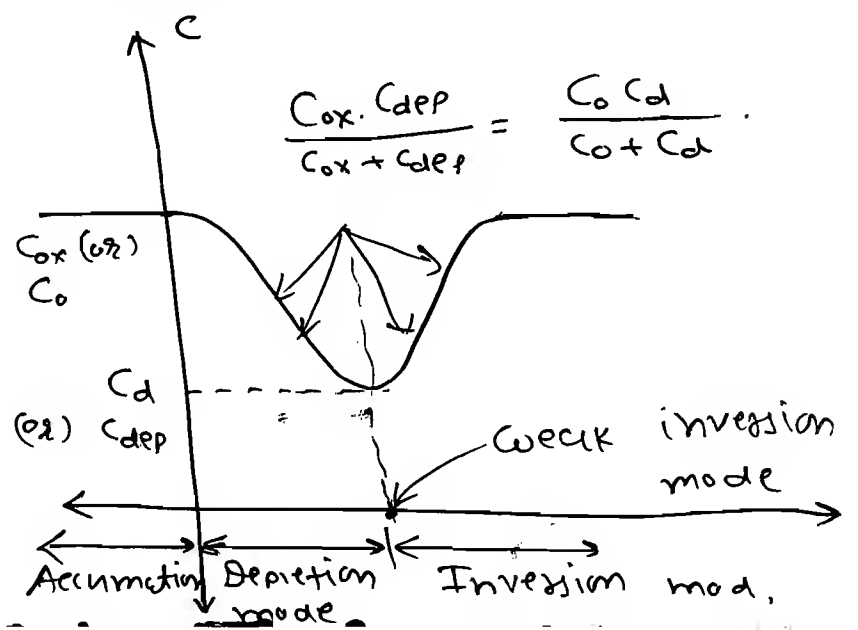 C
Cox. Cdep / Cox + Cdep = Co Cd / Co + Cd .
Cox (or)
Co
Cd
(or) Cdep
weak inversion
mode
Accumation Depletion Inversion mod.
mode